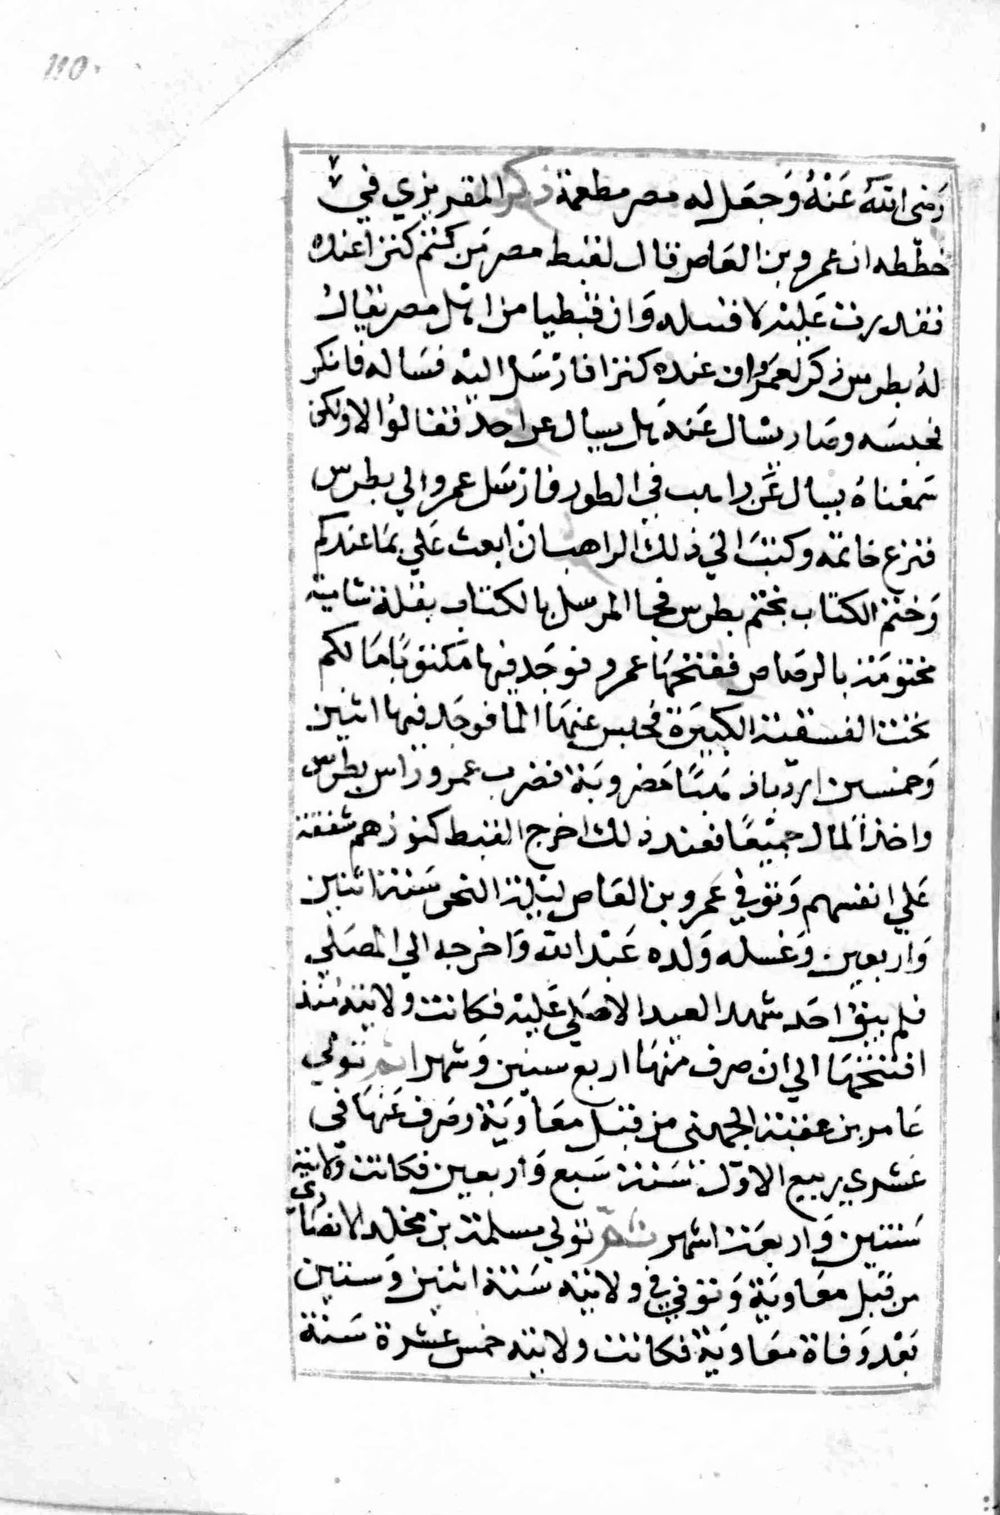 110
رضى الله عَنْهُ وَجعَل له مصر مطعمة ذكر المقريزي في
خططه ان عمرو بن العاص قال لقبط مصر مَن كتم كنزا عنده
فقدرت عَليْه لاقتلنه وَان قبطيا من اهل مصر يقال
لهُ بطرس ذكر لعَمرو ان عنده كنزا فارْسَل اليْه فسَاله فانكر
فحبسَه وصَار يسْال عَنه هل يسال عن احد فقالوُا لا ولكن
سَمعناهُ يسال عَن راهب في الطور فارْسَل عمرو الي بطرس
فنزع خاتمه وكتبَ الي ذلك الراهب ان ابعث عَلي بمَا عندكم
وَختم الكتاب بختم بطرس فجا المرسل بالكتاب بقلة شامية
مختومَة بالرصاص ففتحهَا عمرو فوجَد فيها مَكتوبًا مَالكم
تحت الفسقية الكبيرَة فحبس عنهَا الما فوجَد فيها اثنين
وَخمسين اردبا ذهبًا مَضروبَة فضرب عمرو رَاس بطرس
واخذ المَال جميْعًا فعند ذلك اخرج القبط كنوزهم شفقة
عَلي انفسهم وَتوفي عَمرو بن العَاص ليْلة النحر سَنة اثنين
وَاربعين وَغسله وَلده عَبْد الله وَاخرجه الي المصَلي
فلم يبق احَد شهد العيد الا صَلي عَليْه فكانت ولايته مُنذ
افتتحهَا الي ان صرف منهَا اربع سنين وَشهرا ثم تولي
عَامر بن عقبة الجهنى من قبل معَاوَيَة وصَرف عَنهَا في
عَشري ربيع الاوّل سَنة سَبع وَاربعين فكانت وَلايته
سَنتين وَاربعَة اشهر ثم تولي مسلمة بن مخلد الانصَاري
من قبَل معَاويَة وَتوفي في ولايته سَنة اثنين وَستين
بَعْد وَفاة معَاوَيَة فكانت ولايته خمس عشرة سَنة